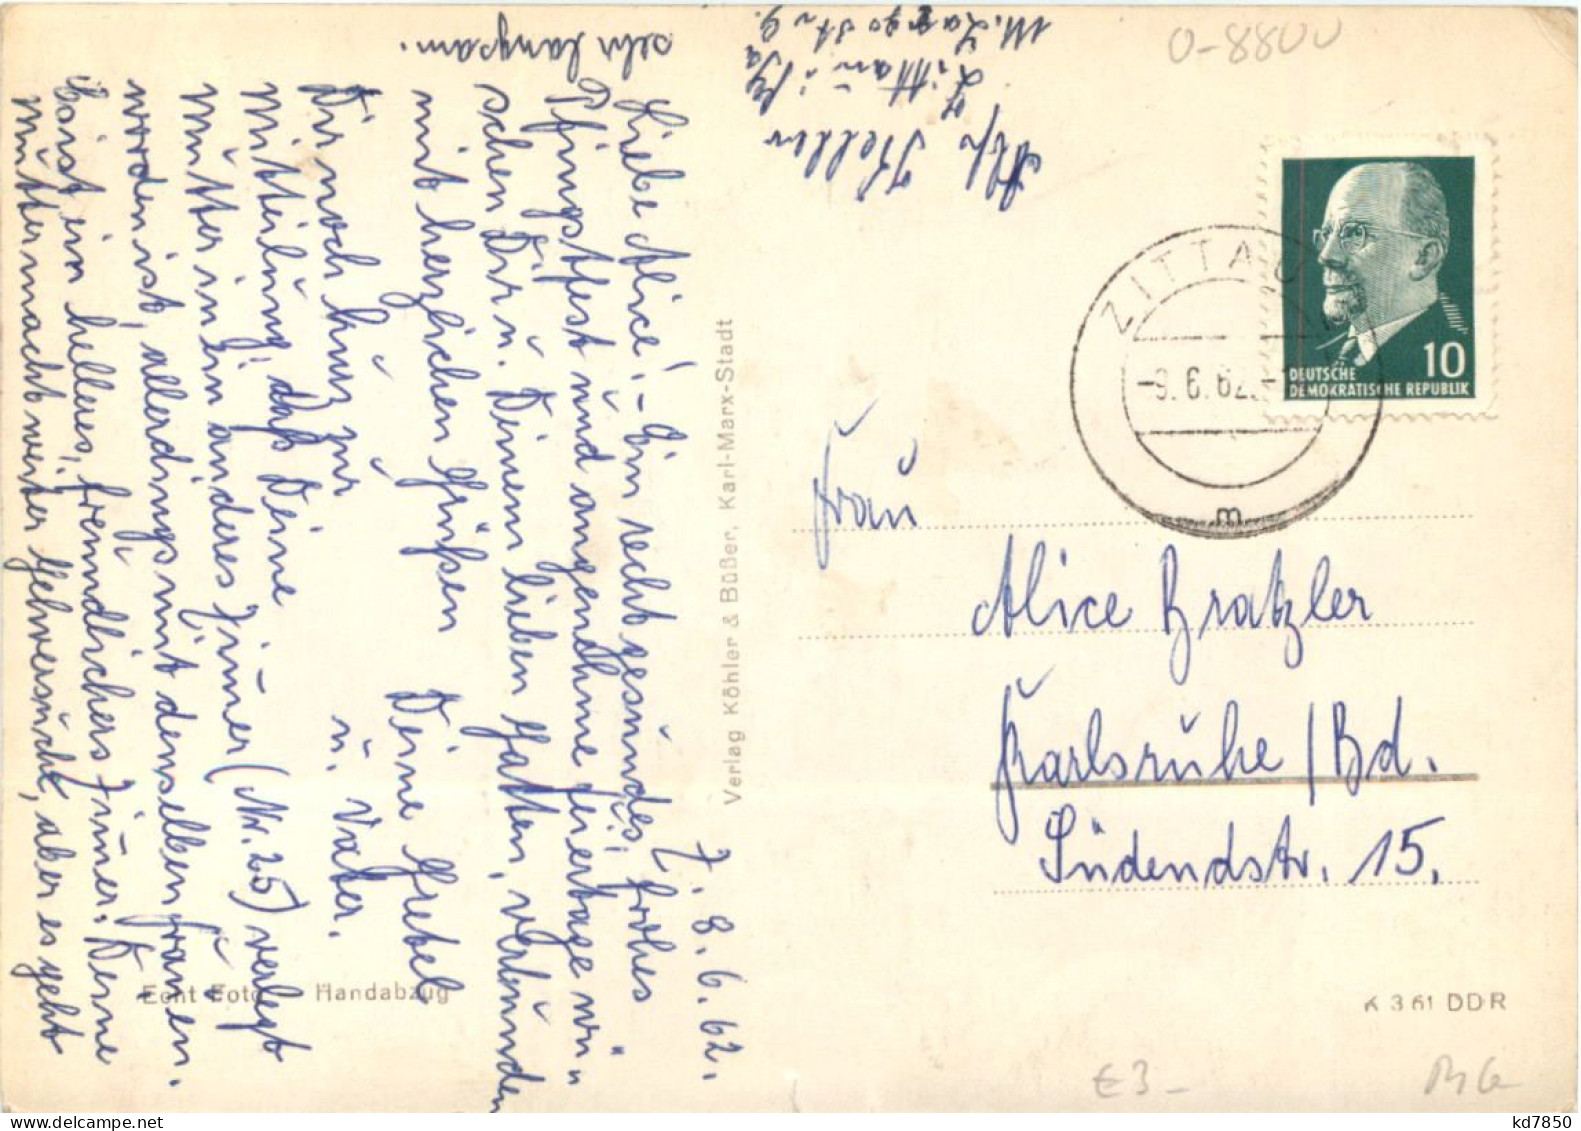 Z. 8.6.62.
Liebe Alice! - Ein recht gesundes, frohes
Pfingstfest und angenehme Feiertage wün-
schen Dir u. Deinem lieben Gatten, verbunden
mit herzlichen Grüßen Deine Gretel
u. Vater.
Dir noch kurz zur
Mitteilung, daß Deine
Mutter in ein anderes Zimmer (Nr. 25) verlegt
worden ist, allerdings mit denselben Frauen.
Es ist ein helles, freundliches Zimmer. Deine
Mutter macht weiter Gehversuche, aber es geht
sehr langsam.
Zittau
Verlag Köhler & Büßer, Karl-Marx-Stadt
Echt Foto Handabzug
0-8800
ZITTAU
-9.6.62.-
m
10
DEUTSCHE
DEMOKRATISCHE REPUBLIK
Frau
Alice Bratzler
Karlsruhe/Bd.
Südendstr. 15.
K 3 61 DDR
€3-
kd7850